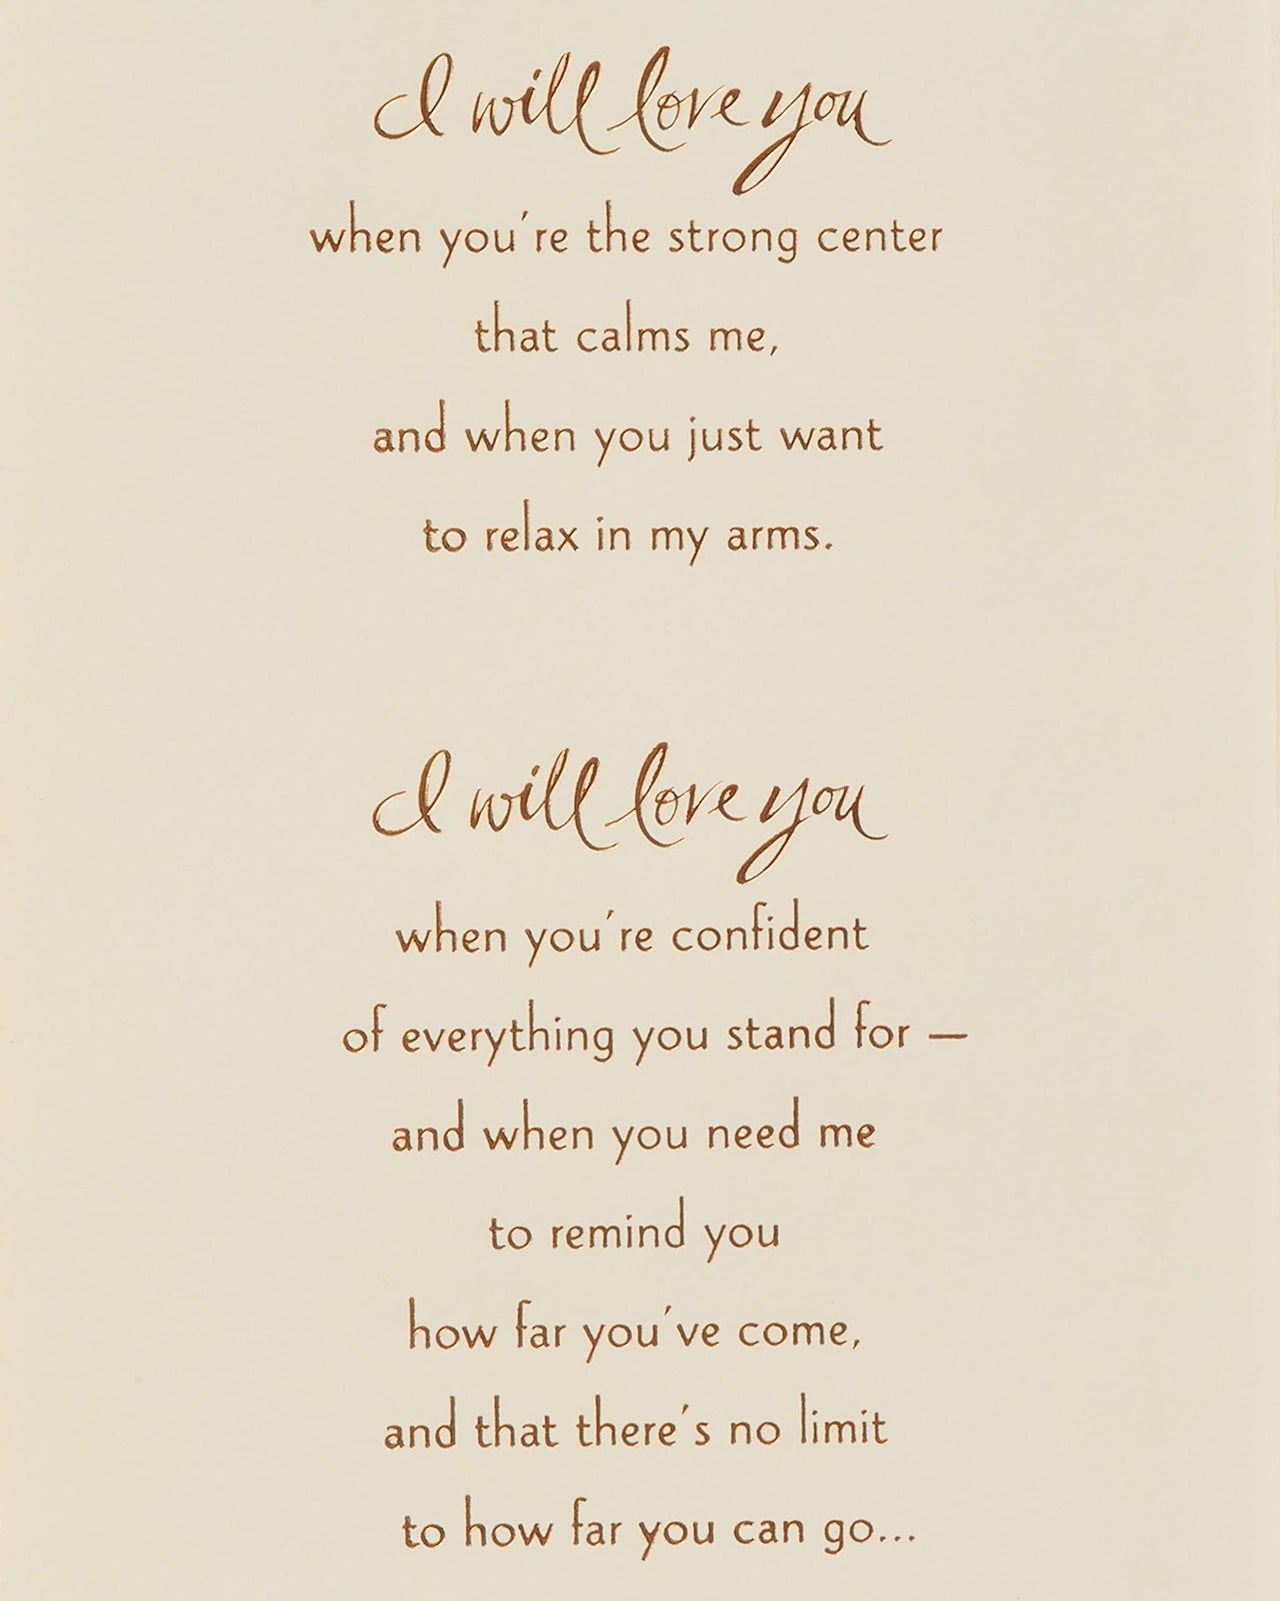 I will love you
when you're the strong center
that calms me,
and when you just want
to relax in my arms.
I will love you
when you're confident
of everything you stand for —
and when you need me
to remind you
how far you've come,
and that there's no limit
to how far you can go...